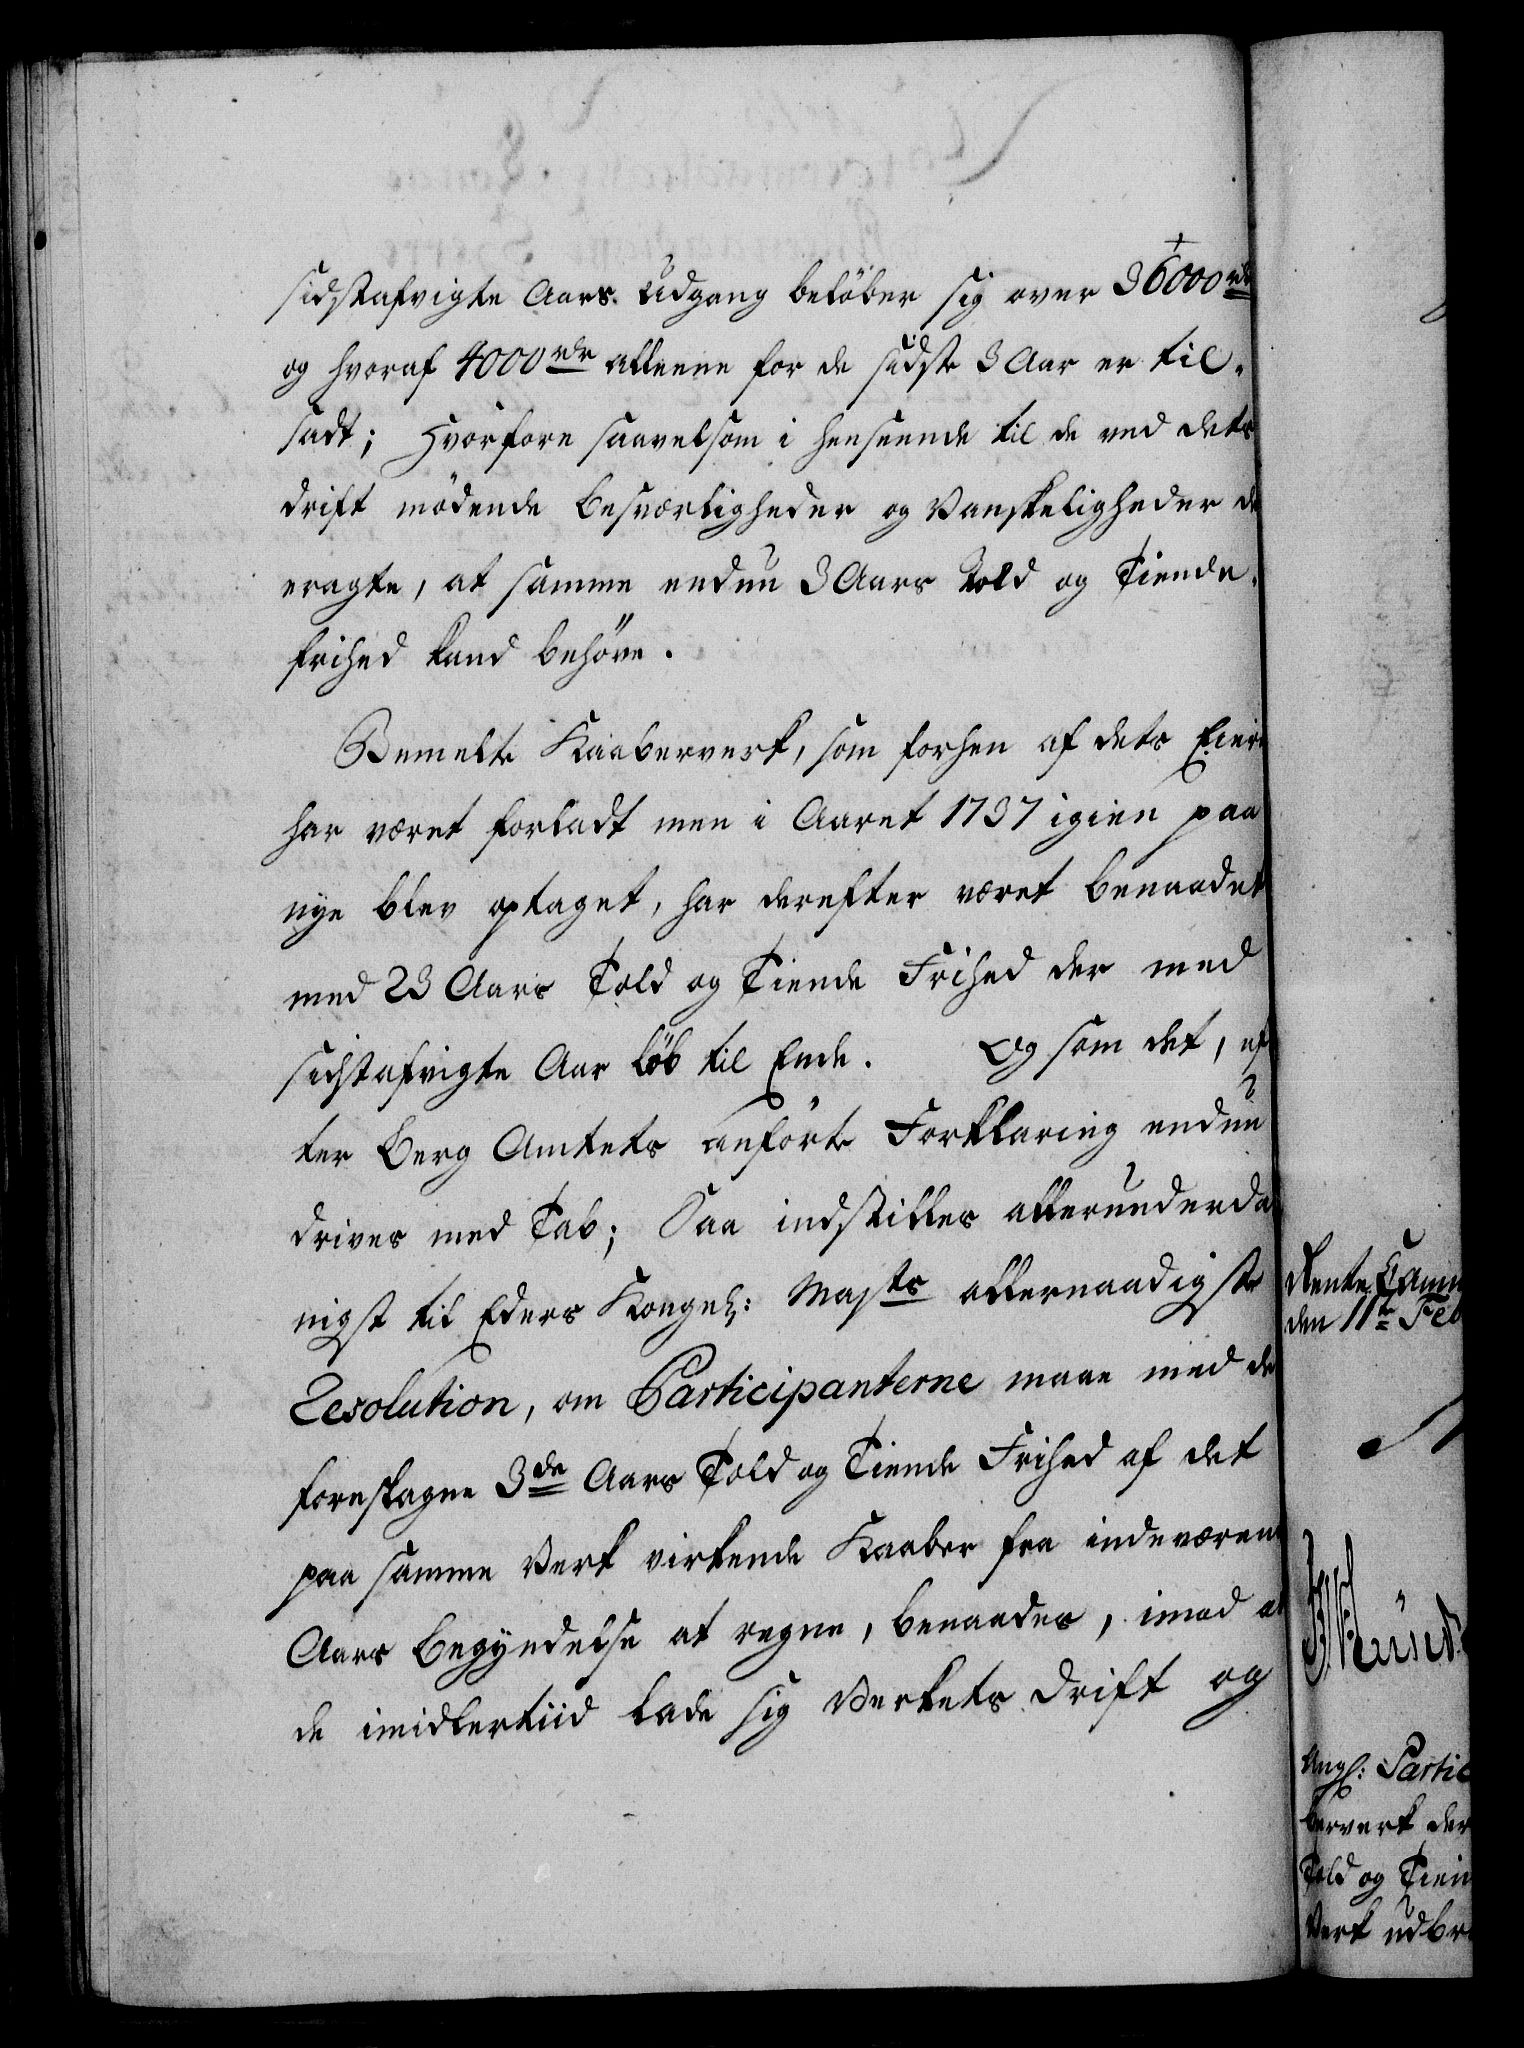 sidstafvigte Aars Udgang belöber sig over 36000 rdr
og hvoraf 4000 rdr alleene for de sidste 3 Aar er til-
sadt; Hvorfore saavelsom i henseende til de ved dets
drift mödende Besværligheder og Vanskeligheder de
eragte, at samme endnu 3 Aars Told og Tiende-
frihed kand behöve.
Bemelte Kaaberverk, som forhen af dets Eiere
har været forladt men i Aaret 1737 igien paa
nye blev optaget, har derefter været benaadet
med 23 Aars Told og Tiende Frihed der med
sidstafvigte Aar löb til Ende. Og som det, ef
ter Berg Amtets anförte Forklaring endnu
drives med Tab; Saa indstilles allerunderda
nigst til Eders Kongel: Majts allernaadigste
Resolution, om Participanterne maae med de
foreslagne 3de Aars Told og Tiende Frihed af det
paa samme Verk virkende Kaaber fra indeværende
Aars Begyndelse at regne, benaades, imod at
de imidlertiid lade sig Verkets Drift og
Rente Camm
den 11te Feb
Ang: Partic
berverk der
Told og Tien
Verk udbr